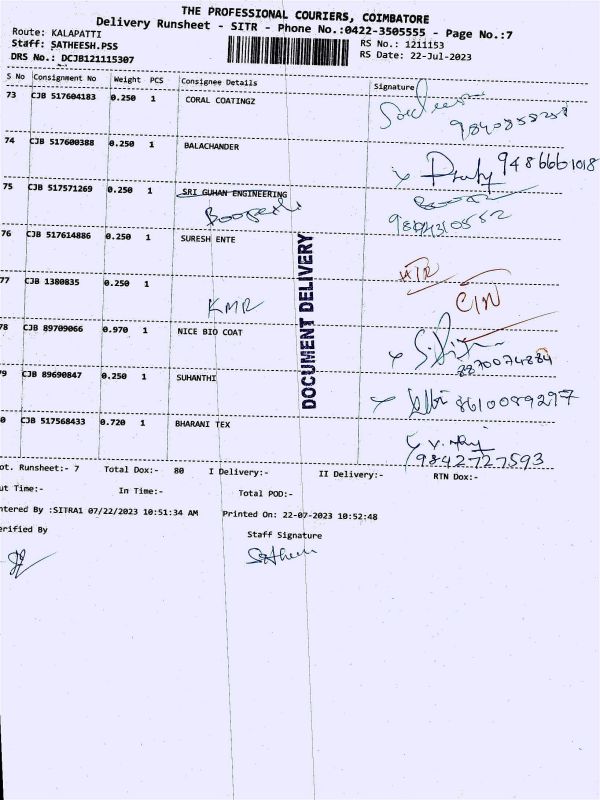 THE PROFESSIONAL COURIERS, COIMBATORE
Delivery Runsheet - SITR - Phone No.:0422-3505555 - Page No.:7
Route: KALAPATTI
Staff: SATHEESH.PSS
DRS No.: DCJB121115307
RS No.: 1211153
RS Date: 22-Jul-2023
S No Consignment No Weight PCS Consignee Details Signature
73 CJB 517604183 0.250 1 CORAL COATINGZ
9840858258
74 CJB 517600388 0.250 1 BALACHANDER
9486661018
75 CJB 517571269 0.250 1 SRI GUHAN ENGINEERING
76 CJB 517614886 0.250 1 SURESH ENTE
77 CJB 1380835 0.250 1
KMR
CIN
78 CJB 89709066 0.970 1 NICE BIO COAT
8870074884
79 CJB 89690847 0.250 1 SUHANTHI
8610089297
0 CJB 517568433 0.720 1 BHARANI TEX
9842727593
DOCUMENT DELIVERY
ot. Runsheet:- 7 Total Dox:- 80 I Delivery:- II Delivery:- RTN Dox:-
ut Time:- In Time:- Total POD:-
ntered By :SITRA1 07/22/2023 10:51:34 AM Printed On: 22-07-2023 10:52:48
erified By
Staff Signature